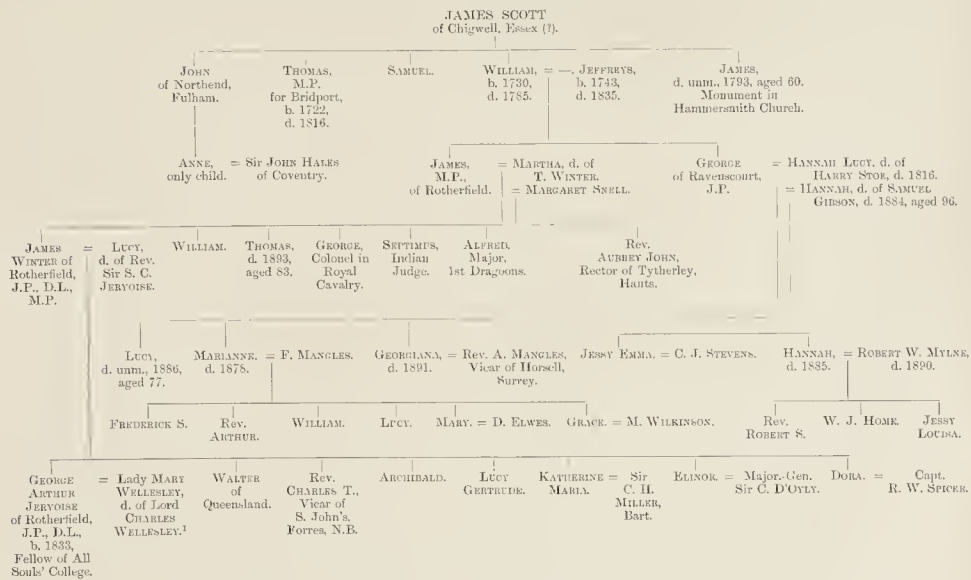 JAMES SCOTT
of Chigwell, Essex (?).
JOHN
of Northend,
Fulham.
THOMAS,
M.P.
for Bridport,
b. 1722,
d. 1816.
SAMUEL.
WILLIAM, = —. JEFFREYS,
b. 1730, b. 1743,
d. 1785. d. 1835.
JAMES,
d. unm., 1793, aged 60.
Monument in
Hammersmith Church.
ANNE, = Sir JOHN HALES
only child. of Coventry.
JAMES, = MARTHA, d. of
M.P., T. WINTER.
of Rotherfield. = MARGARET SNELL.
GEORGE = HANNAH LUCY, d. of
of Ravenscourt, HARRY STOE, d. 1816.
J.P. = HANNAH, d. of SAMUEL
GIBSON, d. 1884, aged 96.
JAMES =
WINTER of
Rotherfield,
J.P., D.L.,
M.P.
LUCY,
d. of Rev.
Sir S. C.
JERVOISE.
WILLIAM.
THOMAS,
d. 1893,
aged 83.
GEORGE,
Colonel in
Royal
Cavalry.
SEPTIMUS,
Indian
Judge.
ALFRED,
Major,
1st Dragoons.
Rev.
AUBREY JOHN,
Rector of Tytherley,
Hants.
LUCY,
d. unm., 1886,
aged 77.
MARIANNE, = F. MANGLES.
d. 1878.
GEORGIANA, = Rev. A. MANGLES,
d. 1891. Vicar of Horsell,
Surrey.
JESSY EMMA. = C. J. STEVENS.
HANNAH, = ROBERT W. MYLNE,
d. 1885. d. 1890.
FREDERICK S.
Rev.
ARTHUR.
WILLIAM.
LUCY.
MARY. = D. ELWES.
GRACE. = M. WILKINSON.
Rev.
ROBERT S.
W. J. HOME.
JESSY
LOUISA.
GEORGE =
ARTHUR
JERVOISE
of Rotherfield,
J.P., D.L.,
b. 1833,
Fellow of All
Souls' College.
Lady MARY
WELLESLEY,
d. of Lord
CHARLES
WELLESLEY.¹
WALTER
of
Queensland.
Rev.
CHARLES T.,
Vicar of
S. John's,
Forres, N.B.
ARCHIBALD.
LUCY
GERTRUDE.
KATHERINE = Sir
MARIA. C. H.
MILLER,
Bart.
ELINOR. = Major.-Gen.
Sir C. D'OYLY.
DORA. = Capt.
R. W. SPICER.